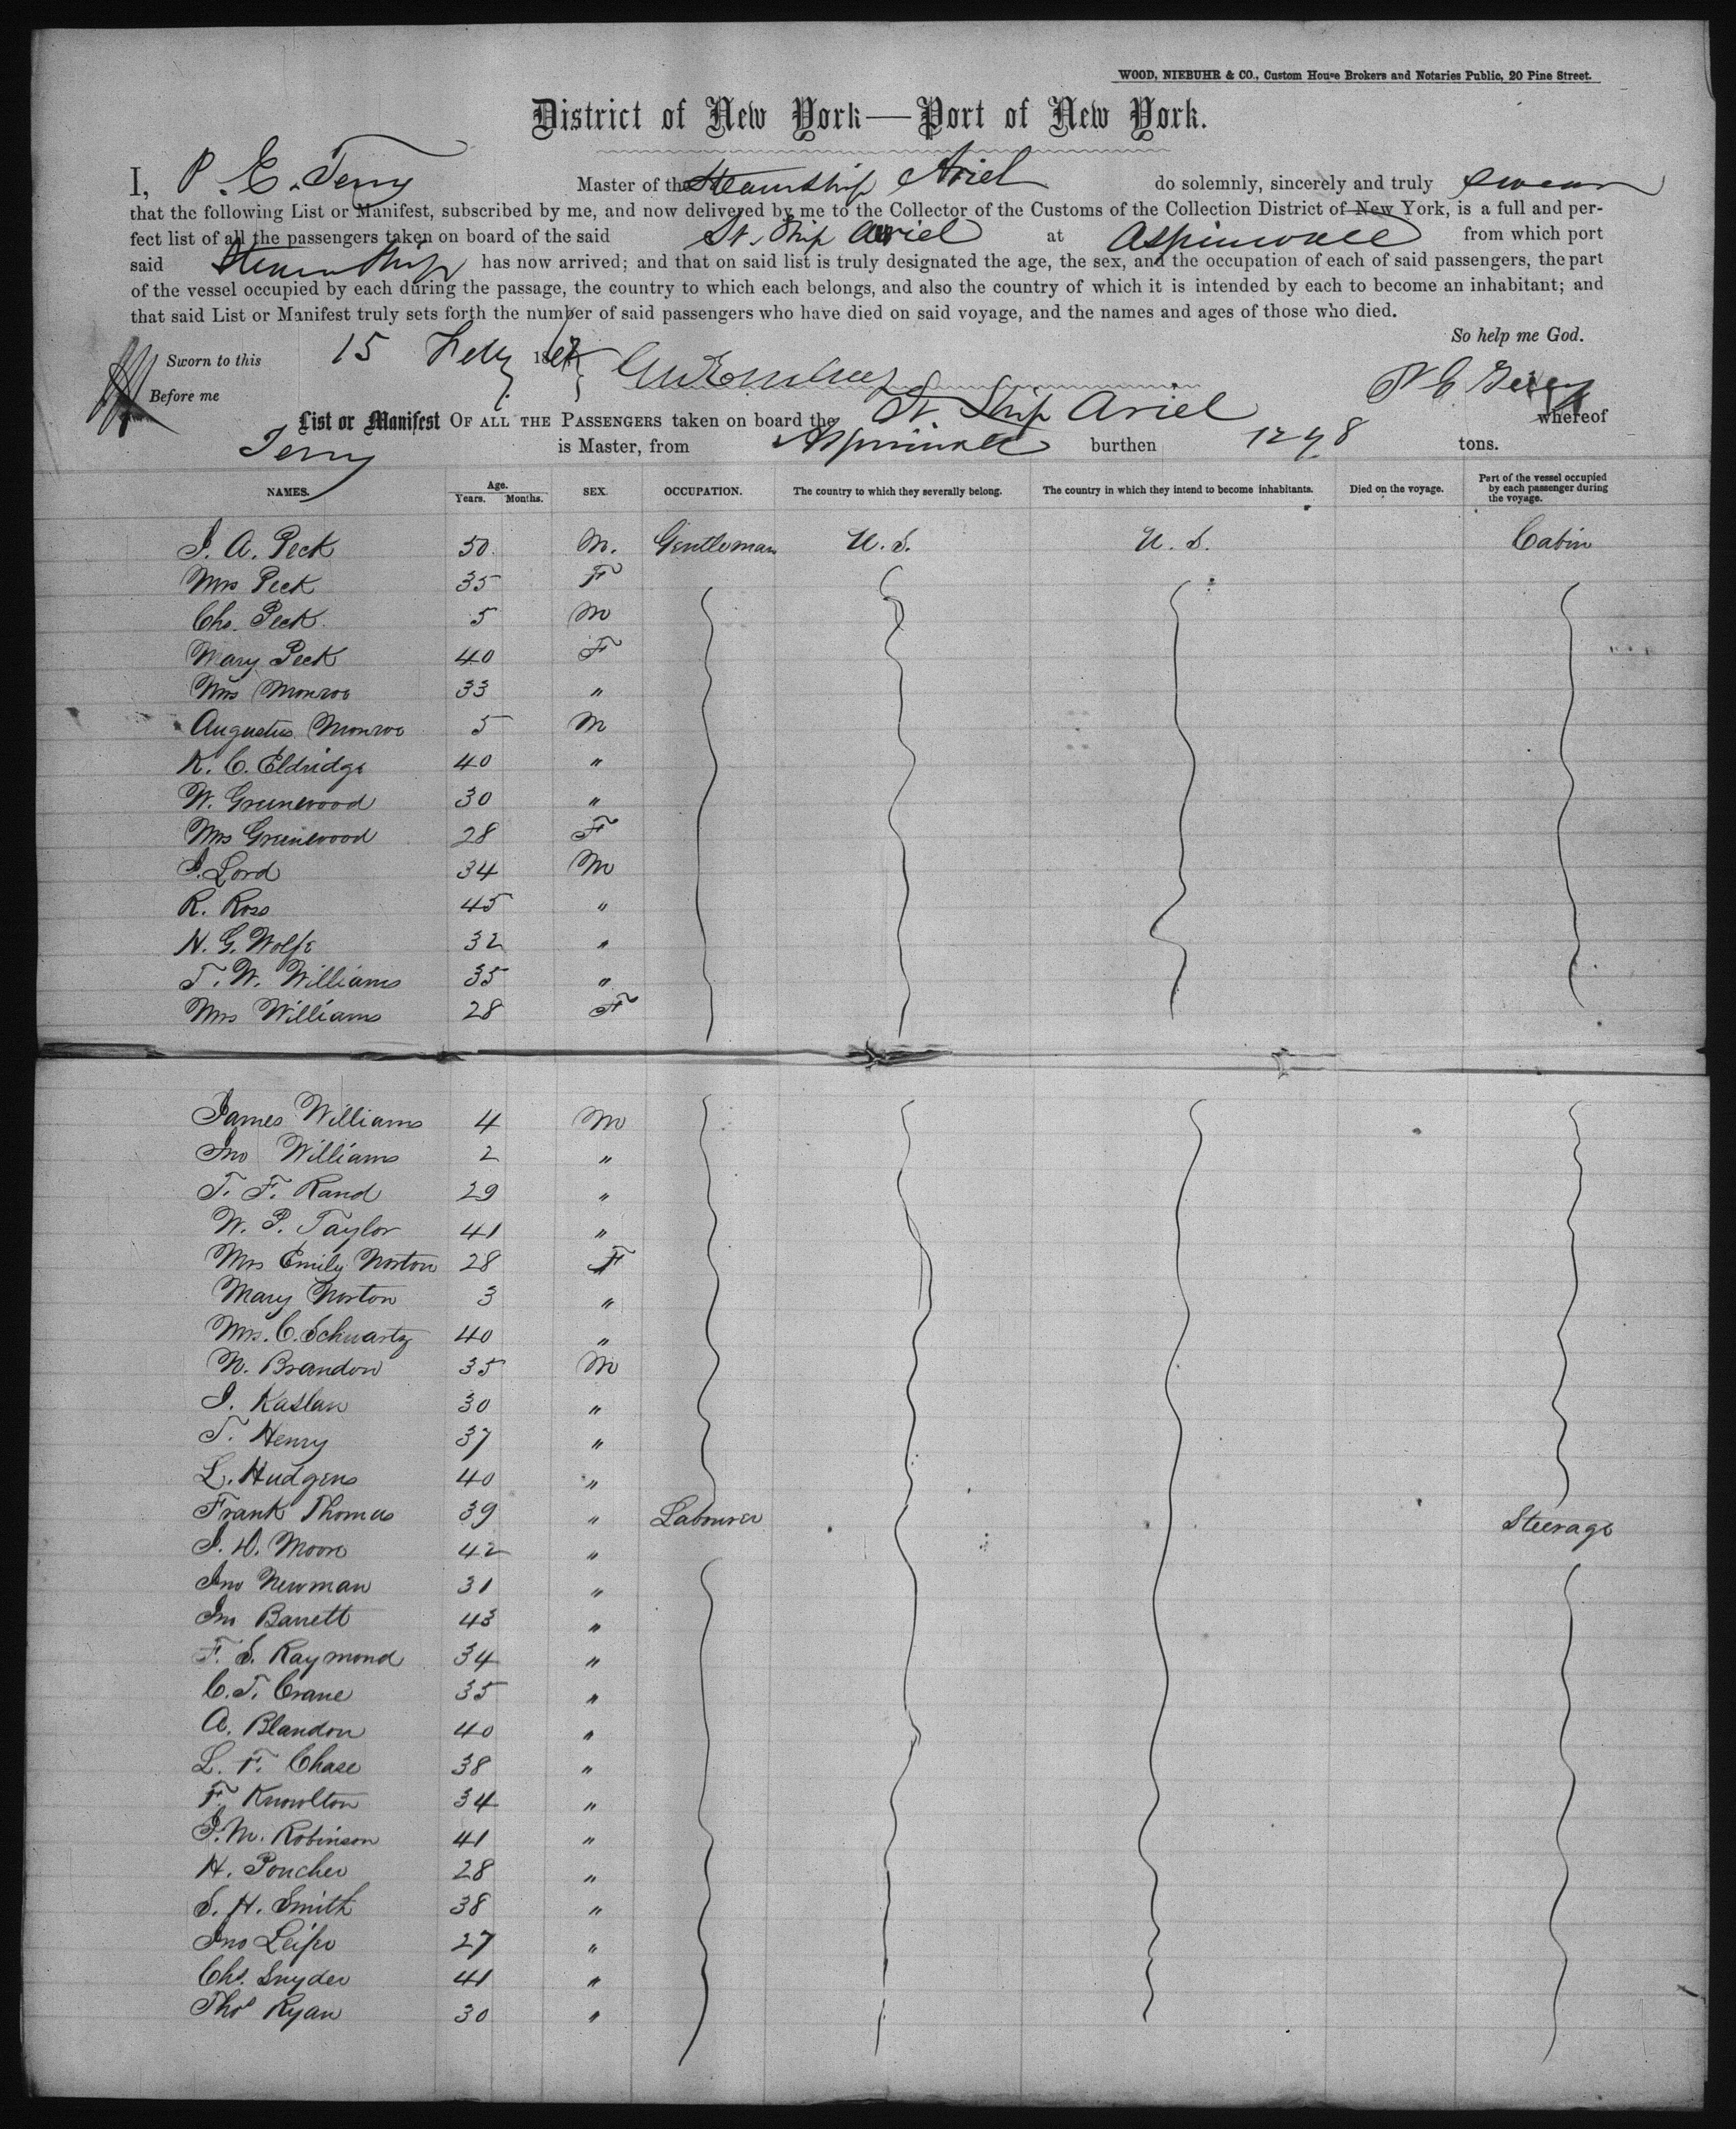 WOOD, NIEBUHR & CO., Custom House Brokers and Notaries Public, 20 Pine Street.
District of New York—Port of New York.
I, P. E. Terry Master of the Steamship Ariel do solemnly, sincerely and truly swear
that the following List or Manifest, subscribed by me, and now delivered by me to the Collector of the Customs of the Collection District of New York, is a full and per-
fect list of all the passengers taken on board of the said St. Ship Ariel at Aspinwall from which port
said Steamship has now arrived; and that on said list is truly designated the age, the sex, and the occupation of each of said passengers, the part
of the vessel occupied by each during the passage, the country to which each belongs, and also the country of which it is intended by each to become an inhabitant; and
that said List or Manifest truly sets forth the number of said passengers who have died on said voyage, and the names and ages of those who died.
So help me God.
Sworn to this 15 Feby 186
Before me P E Terry
List or Manifest OF ALL THE PASSENGERS taken on board the St. Ship Ariel whereof
Terry is Master, from Aspinwall burthen 1298 tons.
NAMES. Age. Years. Months. SEX. OCCUPATION. The country to which they severally belong. The country in which they intend to become inhabitants. Died on the voyage. Part of the vessel occupied by each passenger during the voyage.
J. A. Peck 50 M. Gentleman U. S. U. S. Cabin
Mrs Peck 35 F
Chs. Peck. 5 M
Mary Peck 40 F
Mrs Monroe 33 "
Augustus Monroe 5 M
K. C. Eldridge 40 "
W. Greenwood 30 "
Mrs Greenwood 28 F
J. Lord 34 M
R. Ross 45 "
H. G. Wolfe 32 "
T. W. Williams 35 "
Mrs Williams 28 F
James Williams 4 M
Jno Williams 2 "
T. F. Rand 29 "
W. P. Taylor 41 "
Mrs Emily Norton 28 F
Mary Norton 3 "
Mrs. C. Schwartz 40 "
N. Brandon 35 M
J. Kaslan 30 "
T. Henry 37 "
L. Hudgens 40 "
Frank Thomas 39 " Labourer Steerage
J. D. Moore 42 "
Jno Newman 31 "
Jno Barrett 43 "
F. S. Raymond 34 "
C. T. Crane 35 "
A. Blandon 40 "
L. F. Chase 38 "
F. Knowlton 34 "
J. M. Robinson 41 "
H. Poucher 28 "
S. H. Smith 38 "
Jno 27 "
Chs. Snyder 41 "
Thos Ryan 30 "